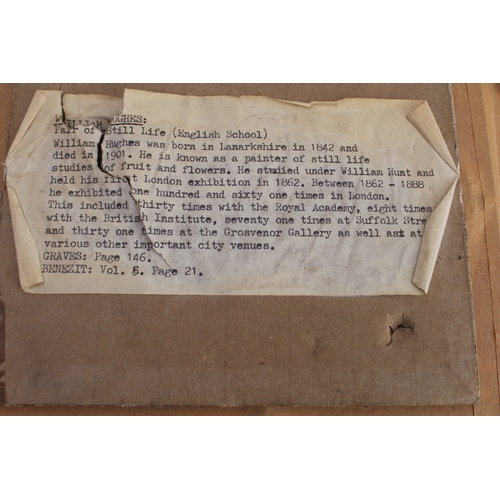 WILLIAM HUGHES:
Pair of Still Life (English School)
William Hughes was born in Lanarkshire in 1842 and
died in 1901. He is known as a painter of still life
studies of fruit and flowers. He studied under William Hunt and
held his first London exhibition in 1862. Between 1862 - 1888
he exhibited one hundred and sixty one times in London.
This included thirty times with the Royal Academy, eight times
with the British Institute, seventy one times at Suffolk Stre
and thirty one times at the Grosvenor Gallery as well ast at
various other important city venues.
GRAVES: Page 146.
BENEZIT: Vol. 5. Page 21.